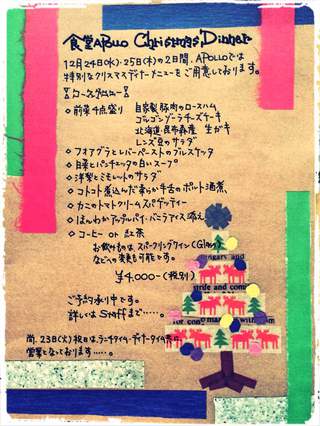 食堂APOLLO Christmas Dinner
12月24日(水)・25日(木)の2日間、APOLLOでは
特別なクリスマスディナーメニューをご用意しております。
コースメニュー
◇前菜4点盛り 自家製豚肉のロースハム
ゴルゴンゾーラチーズケーキ
北海道・昆布森産 生ガキ
レンズ豆のサラダ
◇フォアグラとレバーペーストのブルスケッタ
◇白菜とパンチェッタの白いスープ
◇洋梨とミモレットのサラダ
◇コトコト煮込んだ柔らか牛舌のポルト酒煮
◇カニのトマトクリームスパゲッティー
◇ほんわかアップルパイ・バニラアイス添え
◇コーヒー or 紅茶
お飲みものは、スパークリングワイン(Glass)
などへの変更も可能です。
¥4,000-(税別)
ご予約承り中です。
詳しくはStaffまで……。
尚、23日(火)祝日は、ランチタイム・ディナータイム共に
営業となっております……。
ngars and
strife and com
for con